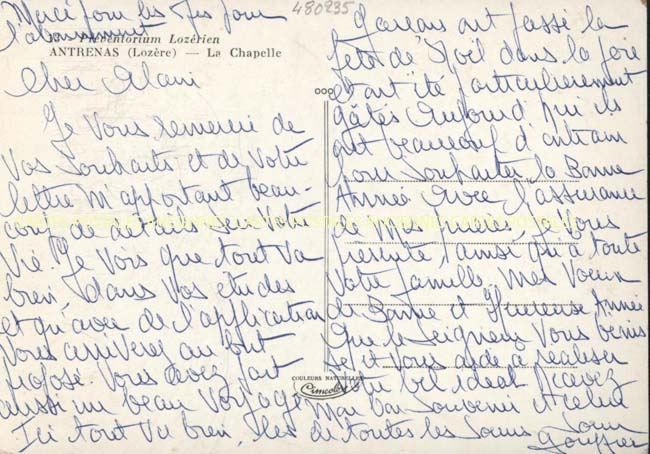 Merci pour les 5 pour
l'abonnement
480235
Préventorium Lozérien
ANTRENAS (Lozère) — La Chapelle
Cher Alain
Je vous remercie de
vos souhaits et de votre
lettre m'apportant beau-
coup de détails sur votre
vie. Je vois que tout va
bien, dans vos etudes
et qu'avec de l'application
vous arriverez au but
propose. Vous avez fait
aussi un beau voyage
Ici tout va bien, les
garcons ont passé la
fete de Noël dans la joie
et ont été particulierement
gâtés Aujourd'hui ils
ont beaucoup d'entrain
pour souhaiter la Bonne
Année Avec l'assurance
de mes prieres, je vous
presente ainsi qu'à toute
votre famille mes voeux
de Bonne et Heureuse Année
Que le Seigneur vous benisse
et vous aide a realiser
votre bel ideal Recevez
mon bon souvenir et celui
de toutes les Soeurs Soeur
COULEURS NATURELLES
Cimcolor